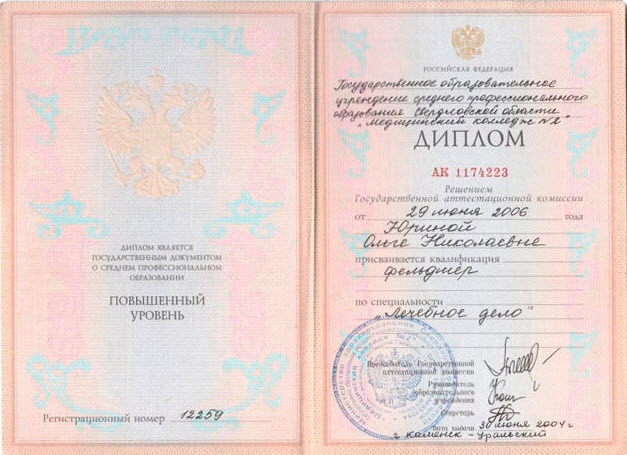 ДИПЛОМ ЯВЛЯЕТСЯ
ГОСУДАРСТВЕННЫМ ДОКУМЕНТОМ
О СРЕДНЕМ ПРОФЕССИОНАЛЬНОМ
ОБРАЗОВАНИИ
ПОВЫШЕННЫЙ
УРОВЕНЬ
Регистрационный номер 12259
РОССИЙСКАЯ ФЕДЕРАЦИЯ
Государственное образовательное
учреждение среднего профессионального
образования Свердловской области
"Медицинский колледж №2"
ДИПЛОМ
АК 1174223
Решением
Государственной аттестационной комиссии
от 29 июня 2006 года
Юриной
Ольге Николаевне
присваивается квалификация
фельдшер
по специальности
"Лечебное дело"
Председатель Государственной
аттестационной комиссии
Руководитель
образовательного
учреждения
Секретарь
Дата выдачи 30 июня
г. Каменск-Уральский